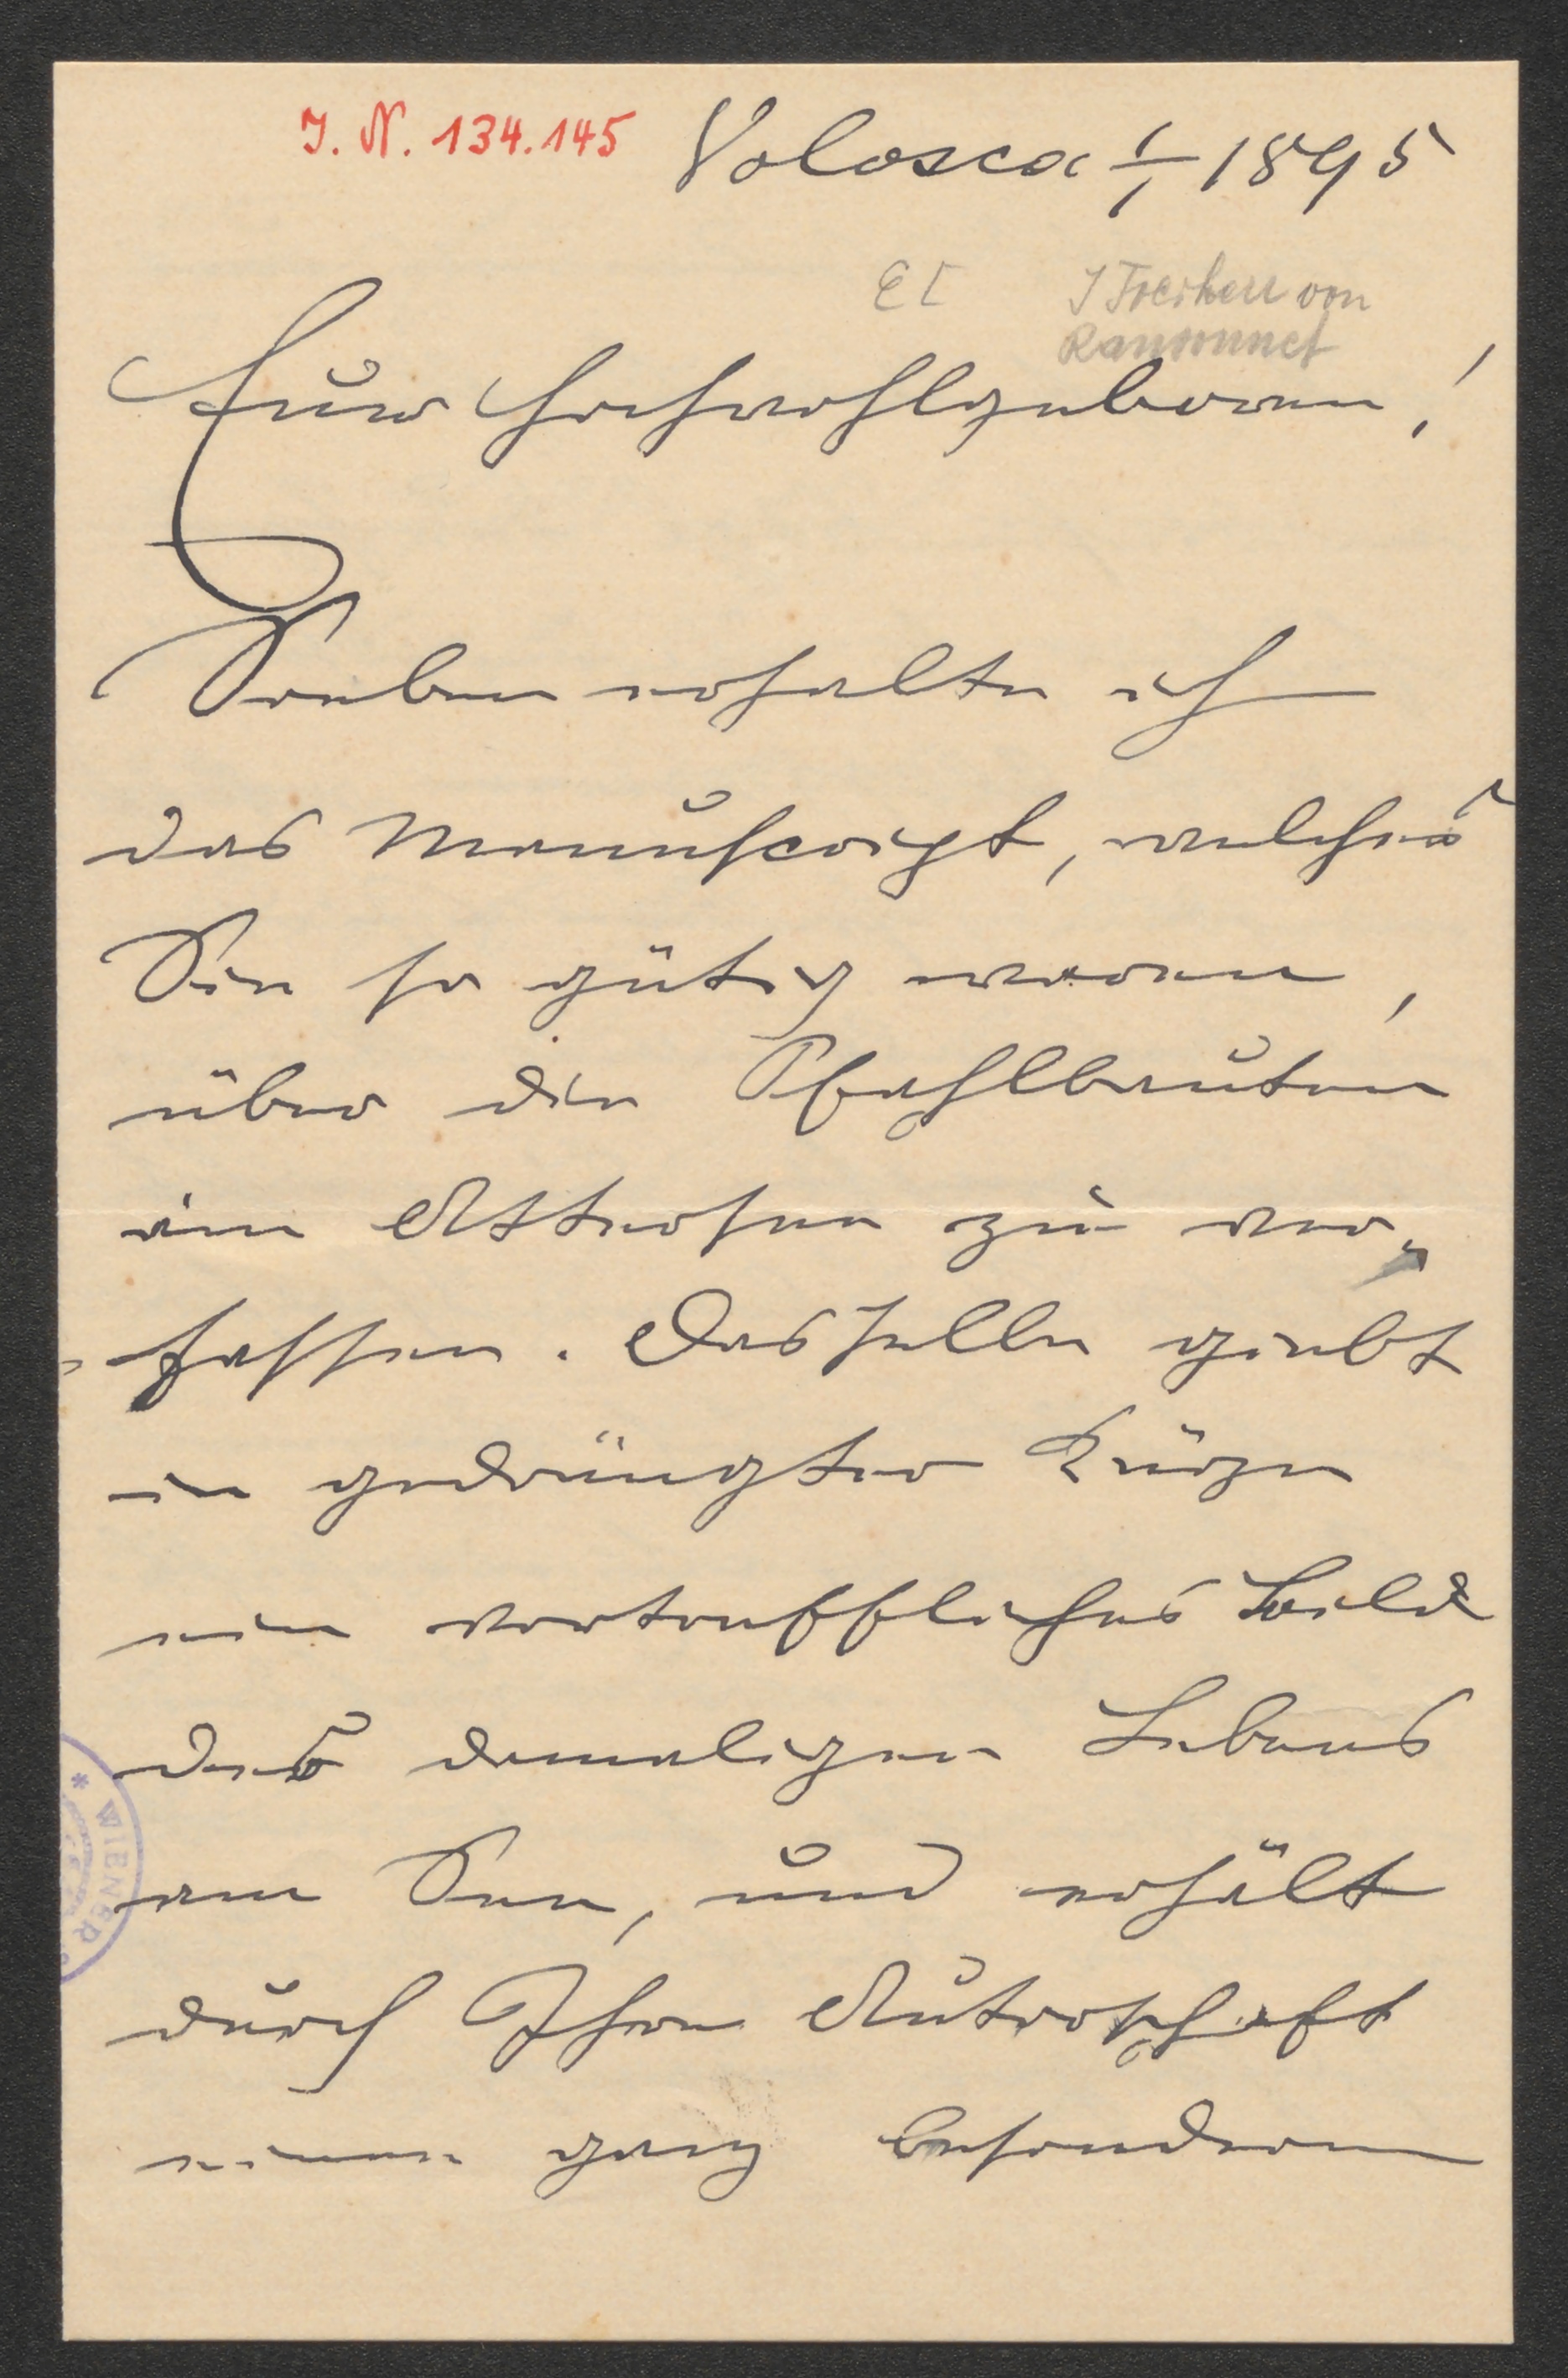 I. N. 134.145
Volosca 1/1 1895
E I Freiherr von
Ransonnet
Euer Hochwohlgeboren!
Soeben erhalte ich
das Manuscript, welches
Sie so gütig waren,
über die Pfahlbauten
im Attersee zu ver=
=fassen. Dasselbe giebt
in gedrängter Kürze
ein vortreffliches Bild
des damaligen Lebens
am See, und erhält
durch Ihre Autorschaft
einen ganz besonderen
WIENER